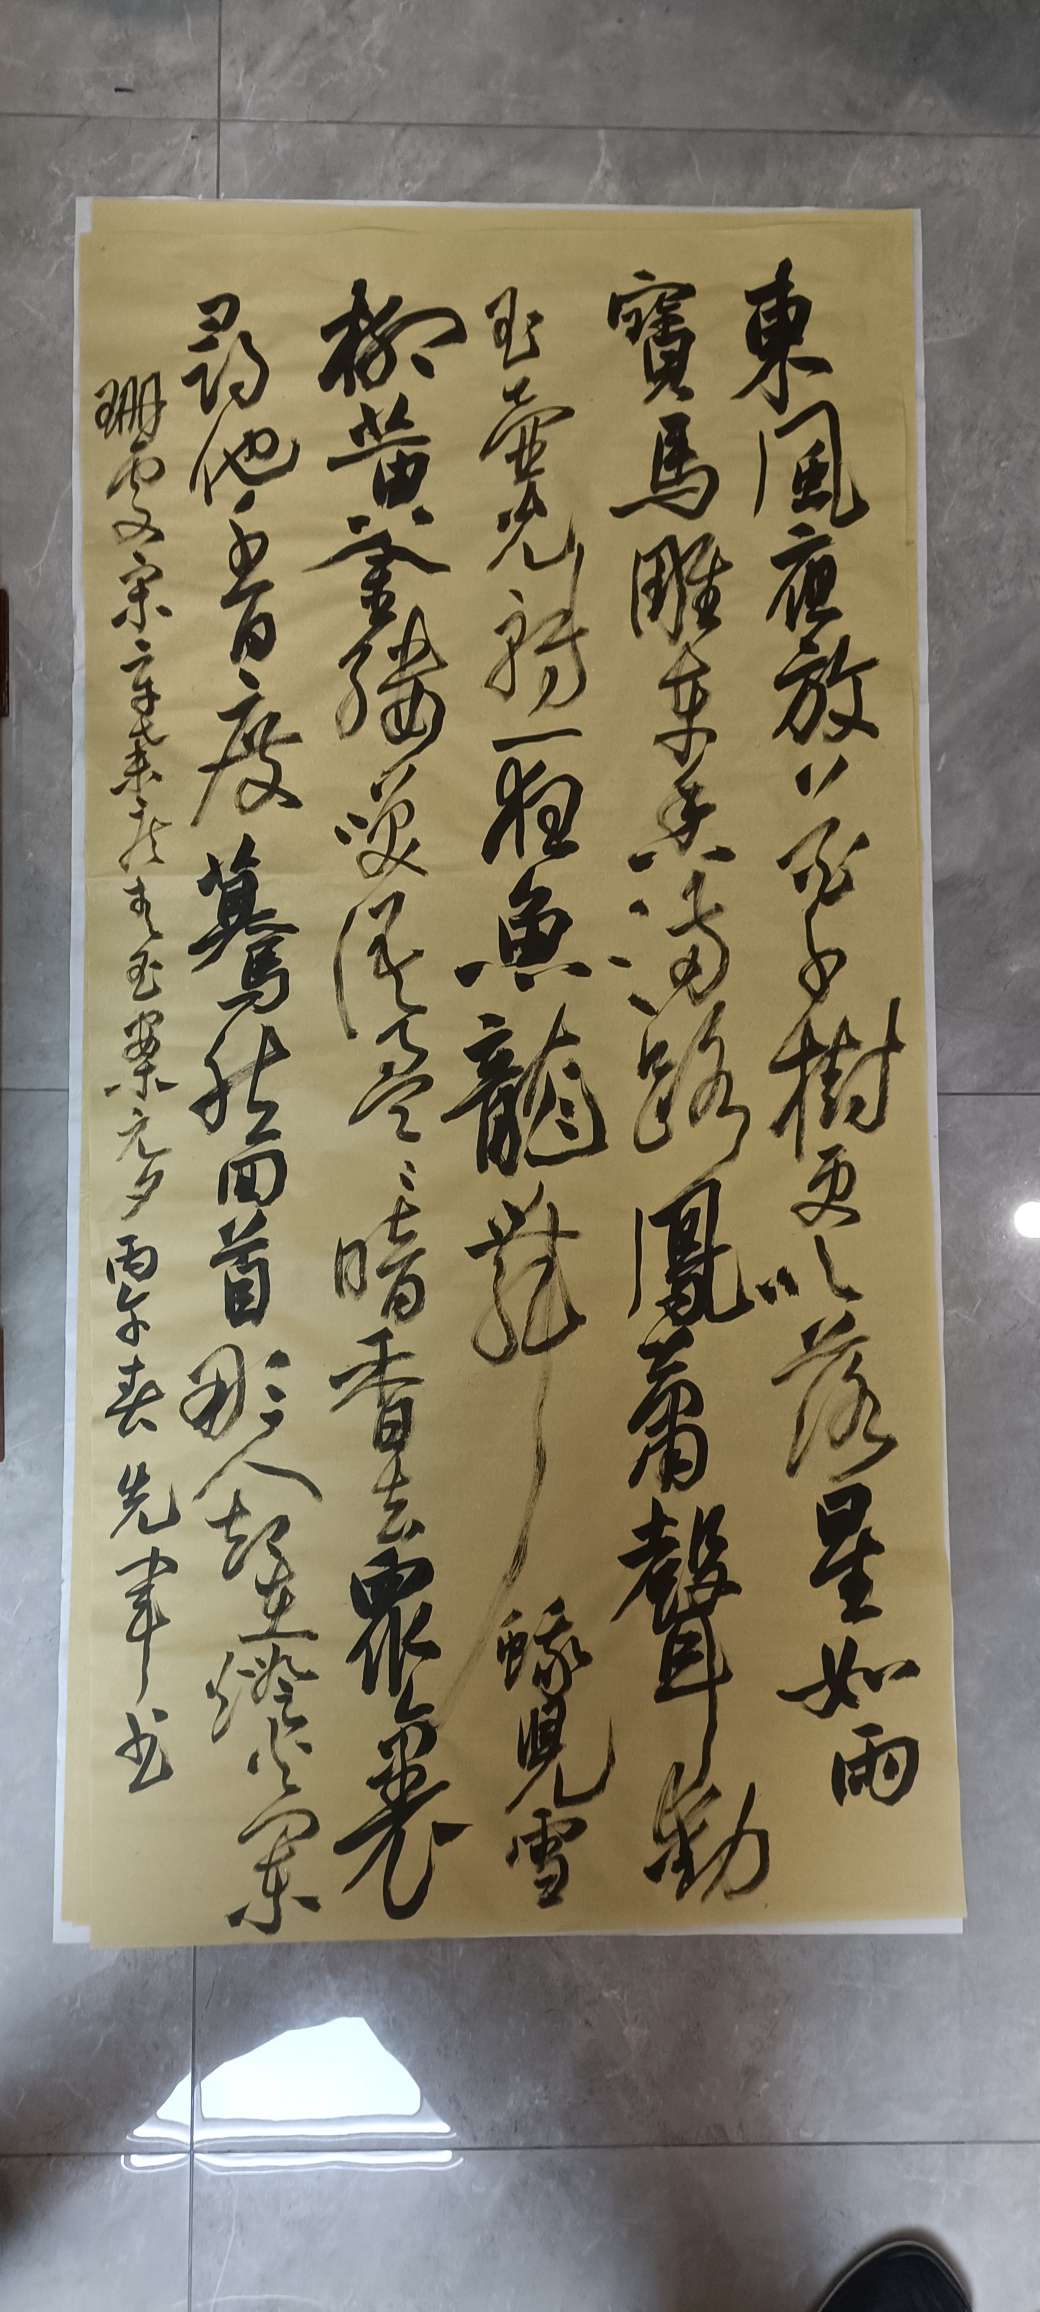 東風夜放花千樹更吹落星如雨
寶馬雕車香滿路鳳蕭聲動
玉壺光轉一夜魚龍舞蛾兒雪
柳黃金縷笑語盈〻暗香去眾裏
尋他千百度驀然回首那人却在燈火闌
珊處宋辛棄疾青玉案元夕丙午春先军书